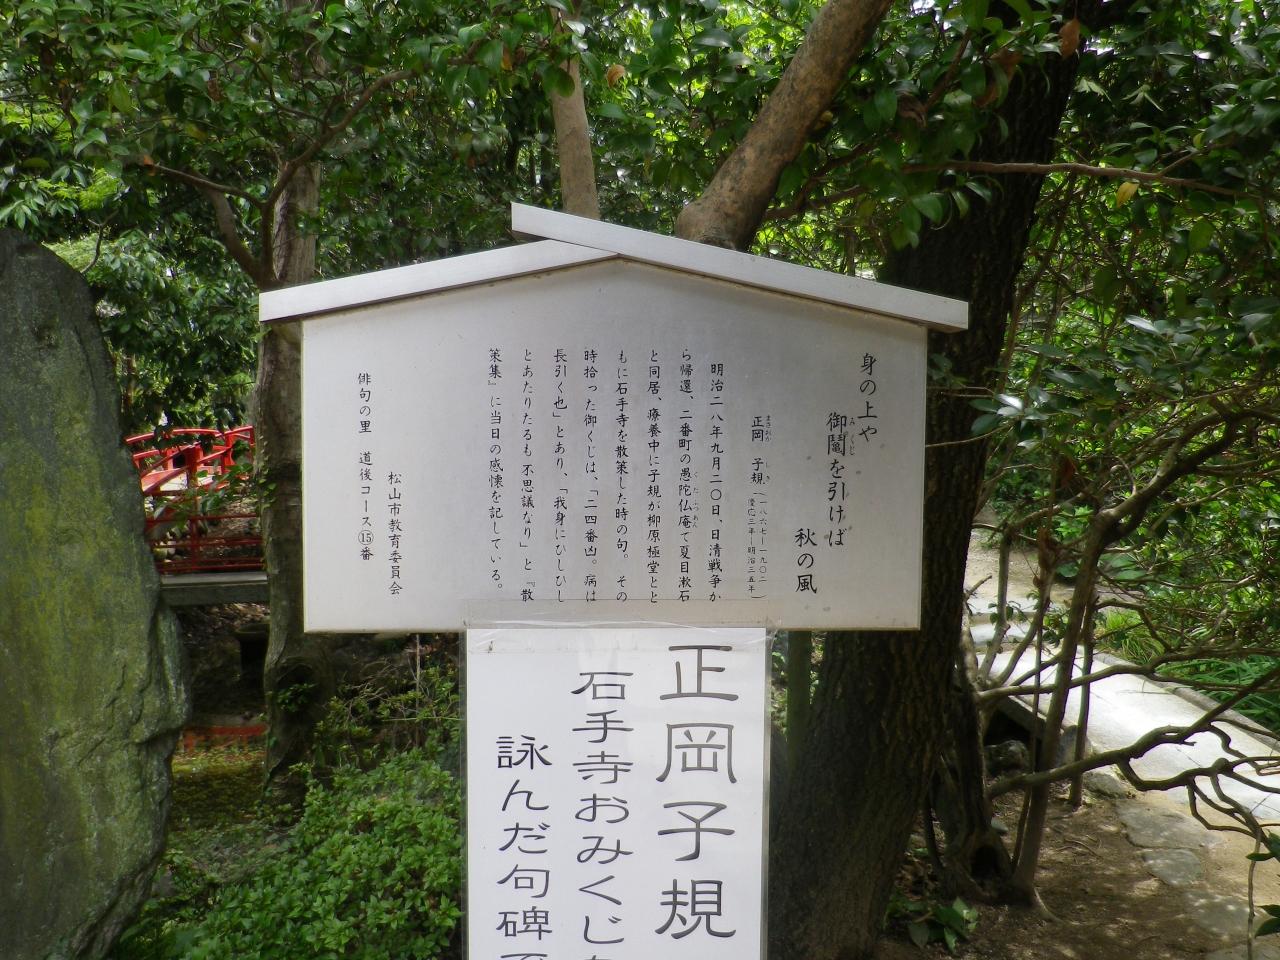 身の上や
御鬮を引けば
みくじ
秋の風
正岡 子規
まさおか しき
(一八六七ー一九〇二
慶応三年ー明治三五年)
明治二八年九月二〇日、日清戦争か
ら帰還、二番町の愚陀仏庵で夏目漱石
ぐだぶつあん
と同居、療養中に子規が柳原極堂とと
もに石手寺を散策した時の句。 その
時拾った御くじは、「二四番凶。病は
長引く也」とあり、「我身にひしひし
とあたりたるも不思議なり」と『散
策集』に当日の感懐を記している。
松山市教育委員会
俳句の里 道後コース⑮番
正岡子規
石手寺おみくじ
詠んだ句碑